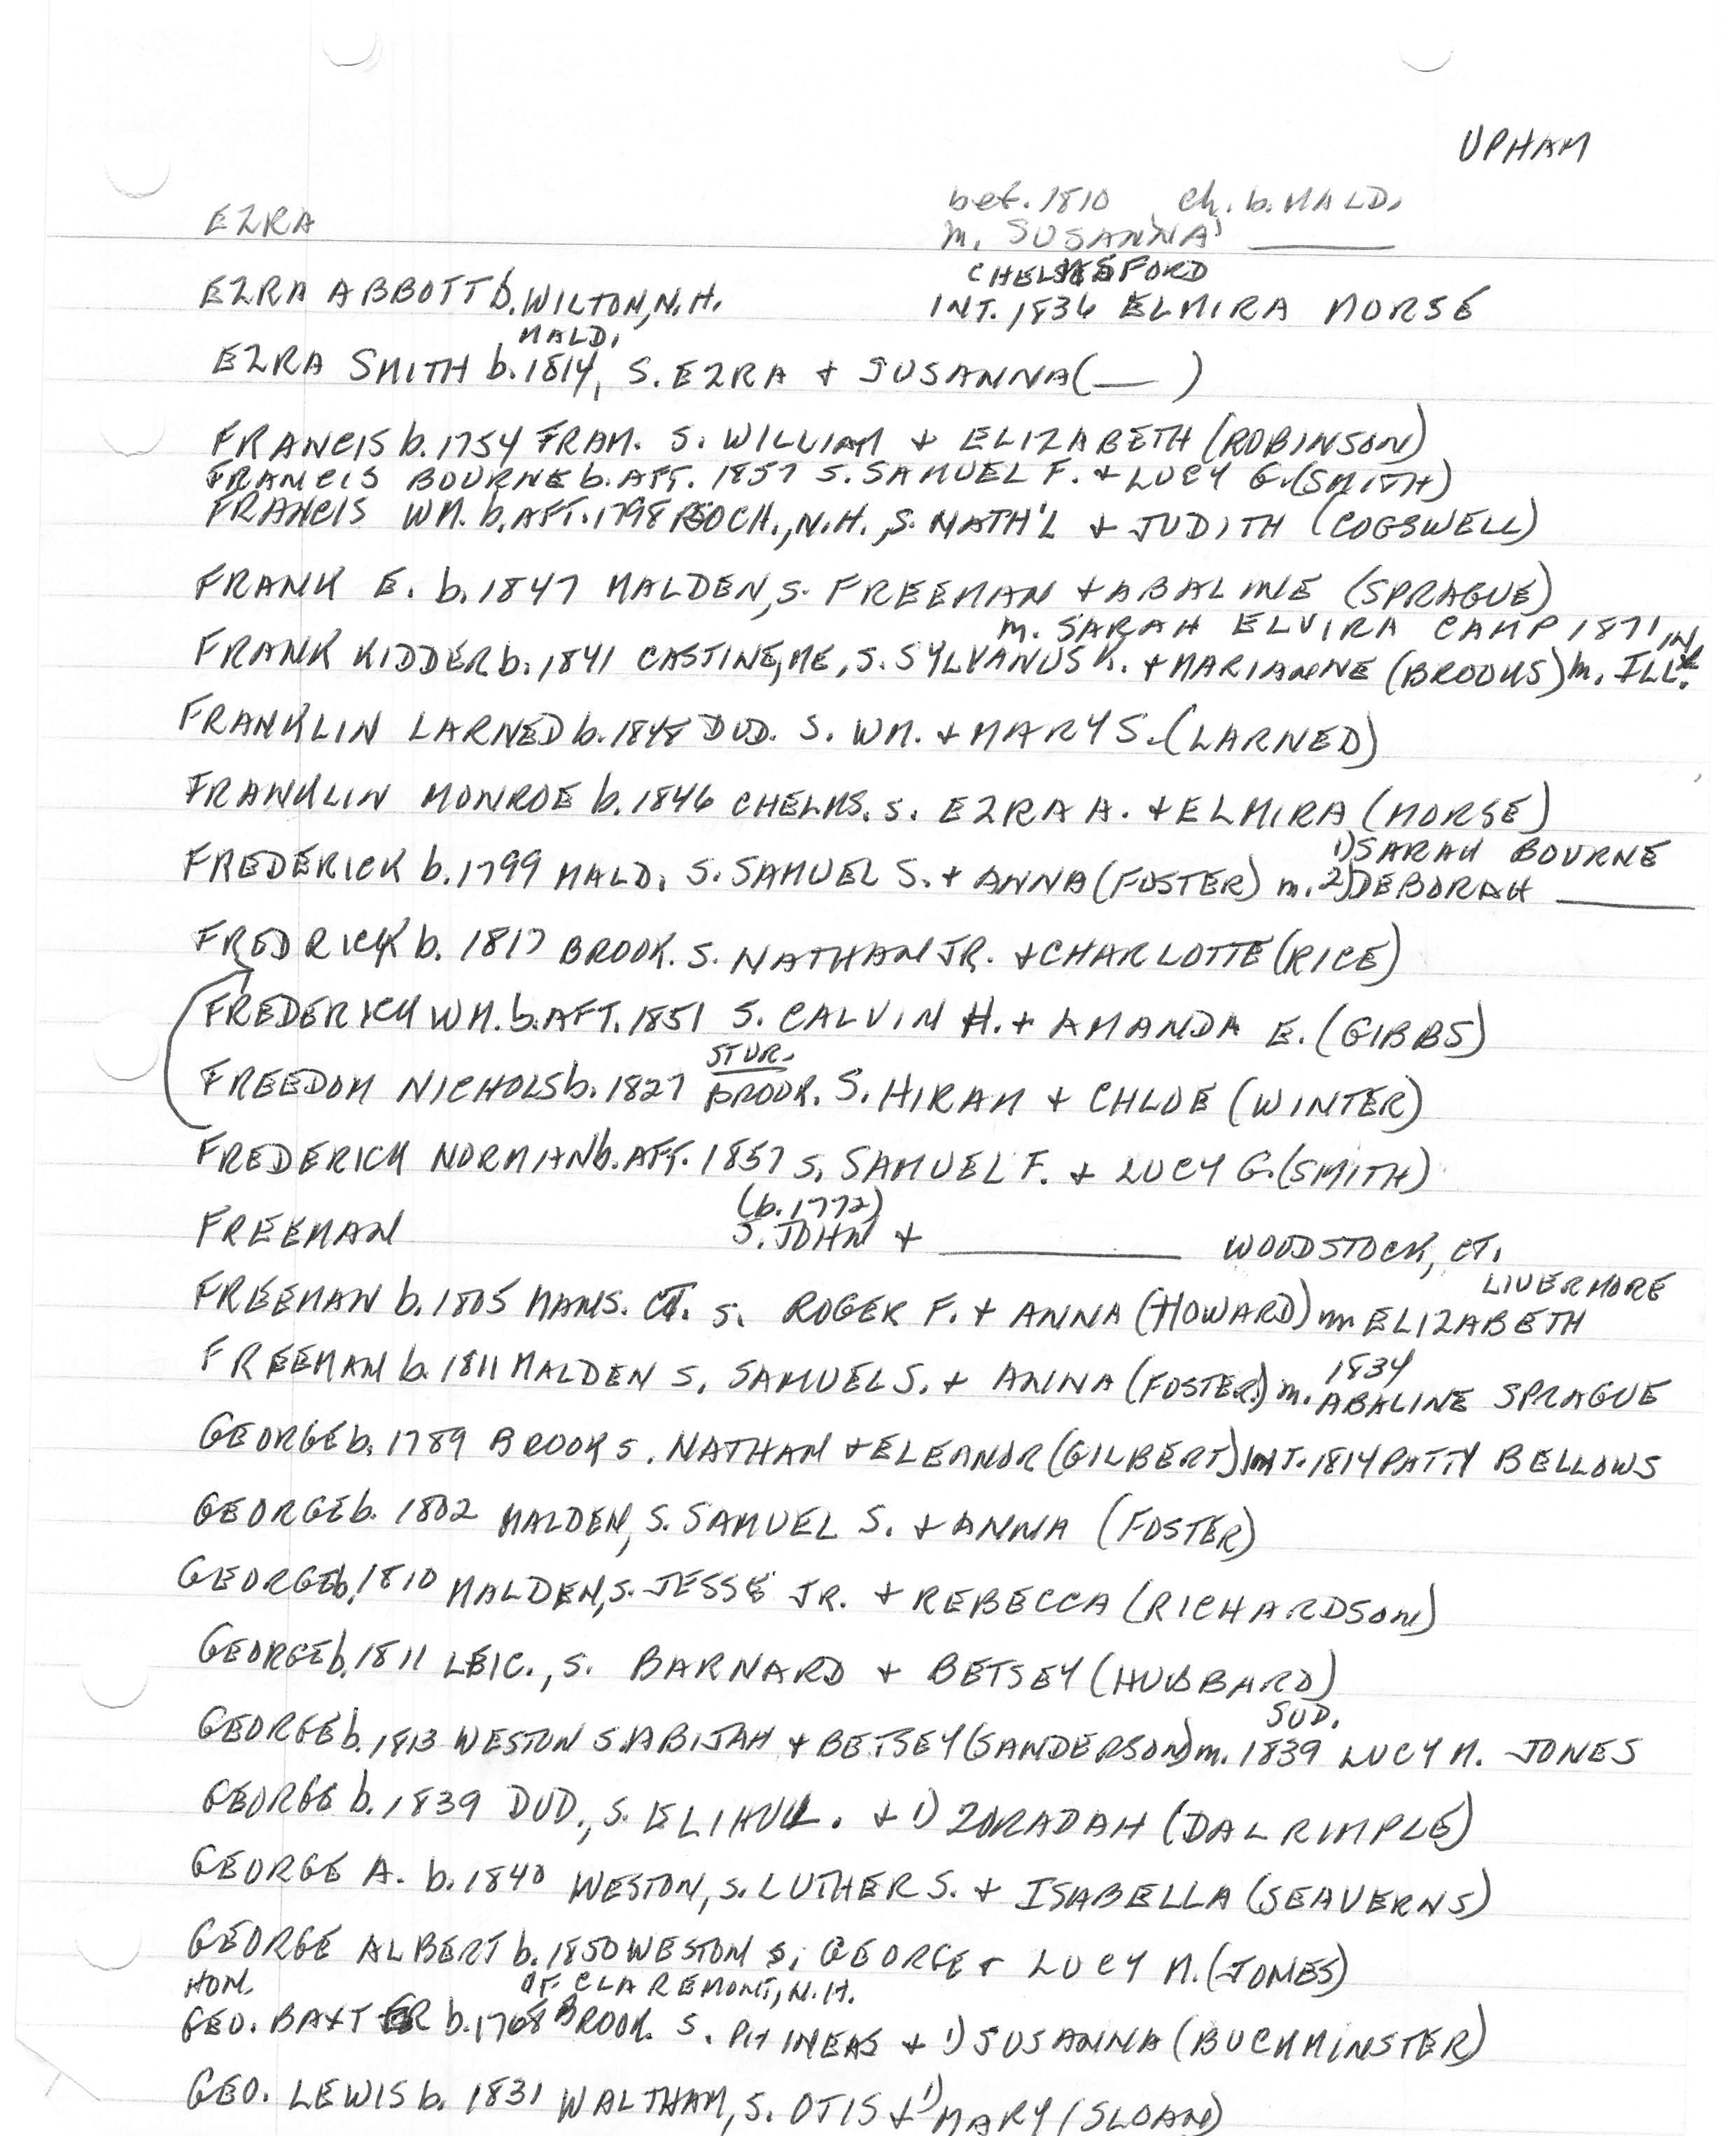 UPHAM
bet. 1810 ch. b. MALD.
EZRA m. SUSANNA ____
CHELMSFORD
EZRA ABBOTT b. WILTON, N.H. INT. 1836 ELMIRA MORSE
MALD.
EZRA SMITH b. 1814, S. EZRA + SUSANNA (__)
FRANCIS b. 1754 FRAM. S. WILLIAM + ELIZABETH (ROBINSON)
FRANCIS BOURNE b. AFT. 1857 S. SAMUEL F. + LUCY G. (SMITH)
FRANCIS WM. b. AFT. 1798 ROCH., N.H., S. NATH'L + JUDITH (COGSWELL)
FRANK E. b. 1847 MALDEN, S. FREEMAN + ABALINE (SPRAGUE)
m. SARAH ELVIRA CAMP 1871 IN
FRANK KIDDER b. 1841 CASTINE, ME, S. SYLVANUS K. + MARIANNE (BROOKS) m. ILL.
FRANKLIN LARNED b. 1848 DUD. S. WM. + MARY S. (LARNED)
FRANKLIN MONROE b. 1846 CHELMS. S. EZRA A. + ELMIRA (MORSE)
1) SARAH BOURNE
FREDERICK b. 1799 MALD. S. SAMUEL S. + ANNA (FOSTER) m. 2) DEBORAH ____
FREDRICK b. 1817 BROOK. S. NATHAN JR. + CHARLOTTE (RICE)
FREDERICK WM. b. AFT. 1851 S. CALVIN H. + AMANDA E. (GIBBS)
STUR.
FREEDOM NICHOLS b. 1827 BROOK. S. HIRAM + CHLOE (WINTER)
FREDERICK NORMAN b. AFT. 1857 S. SAMUEL F. + LUCY G. (SMITH)
(b. 1772)
FREEMAN S. JOHN + ____ WOODSTOCK, CT.
LIVERMORE
FREEMAN b. 1805 MANS. CT. S. ROGER F. + ANNA (HOWARD) m ELIZABETH
1834
FREEMAN b. 1811 MALDEN S. SAMUEL S. + ANNA (FOSTER) m. ABALINE SPRAGUE
GEORGE b. 1789 BROOK S. NATHAN + ELEANOR (GILBERT) INT. 1814 PATTY BELLOWS
GEORGE b. 1802 MALDEN, S. SAMUEL S. + ANNA (FOSTER)
GEORGE b. 1810 MALDEN, S. JESSE JR. + REBECCA (RICHARDSON)
GEORGE b. 1811 LEIC., S. BARNARD + BETSEY (HUBBARD)
SUD.
GEORGE b. 1813 WESTON S. ABIJAH + BETSEY (SANDERSON) m. 1839 LUCY M. JONES
GEORGE b. 1839 DUD., S. ELIHU L. + 1) ZORADAH (DALRIMPLE)
GEORGE A. b. 1840 WESTON, S. LUTHER S. + ISABELLA (SEAVERNS)
GEORGE ALBERT b. 1850 WESTON S. GEORGE + LUCY M. (JONES)
HON. OF CLAREMONT, N.H.
GEO. BAXTER b. 1768 BROOK. S. PHINEAS + 1) SUSANNA (BUCKMINSTER)
GEO. LEWIS b. 1831 WALTHAM, S. OTIS + 1) MARY (SLOAN)